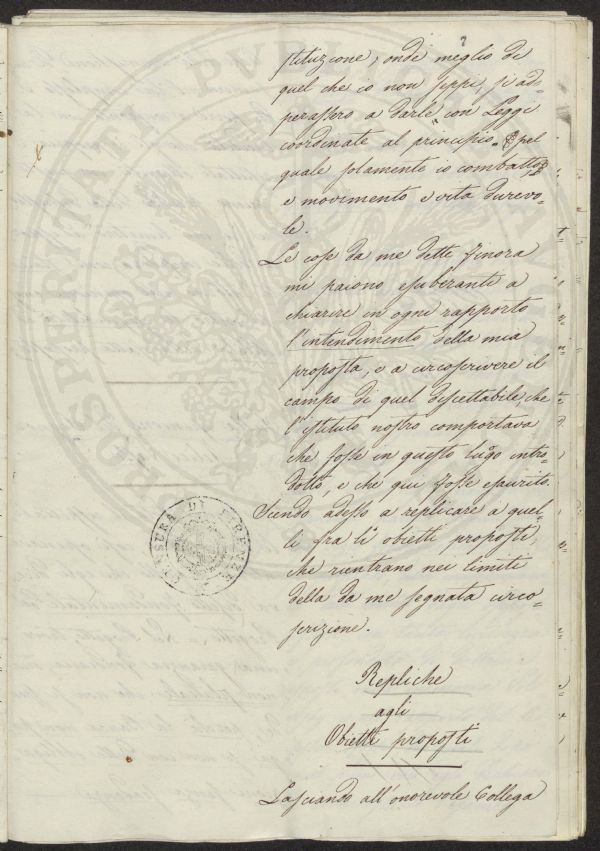 7
stituzione, onde meglio di
quel che io non seppi, s'ad-
perassero a darle con Leggi
coordinate al principio, pel
quale solamente io combatto,
e movimento e vita durevo-
le.
Le cose da me dette finora
mi paiono esuberanti a
chiarire in ogni rapporto
l'intendimento della mia
proposta, e a circoscrivere il
campo di quel discettabile, che
l'istituto nostro comportava
che fosse in questo luogo intro-
dotto, e che qui fosse esaurito.
Scendo adesso a replicare a quel-
li fra li obietti proposti,
che rientrano nei limiti
della da me segnata circo-
scrizione.
CENSURA DI FIRENZE
Repliche
agli
Obietti proposti
Lasciando all'onorevole Collega